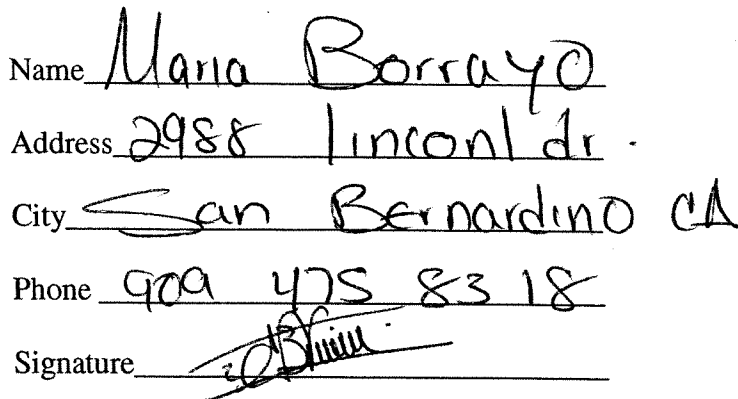 Name Maria Borrayo
Address 2988 linconl dr.
City San Bernardino CA
Phone 909 475 83 18
Signature